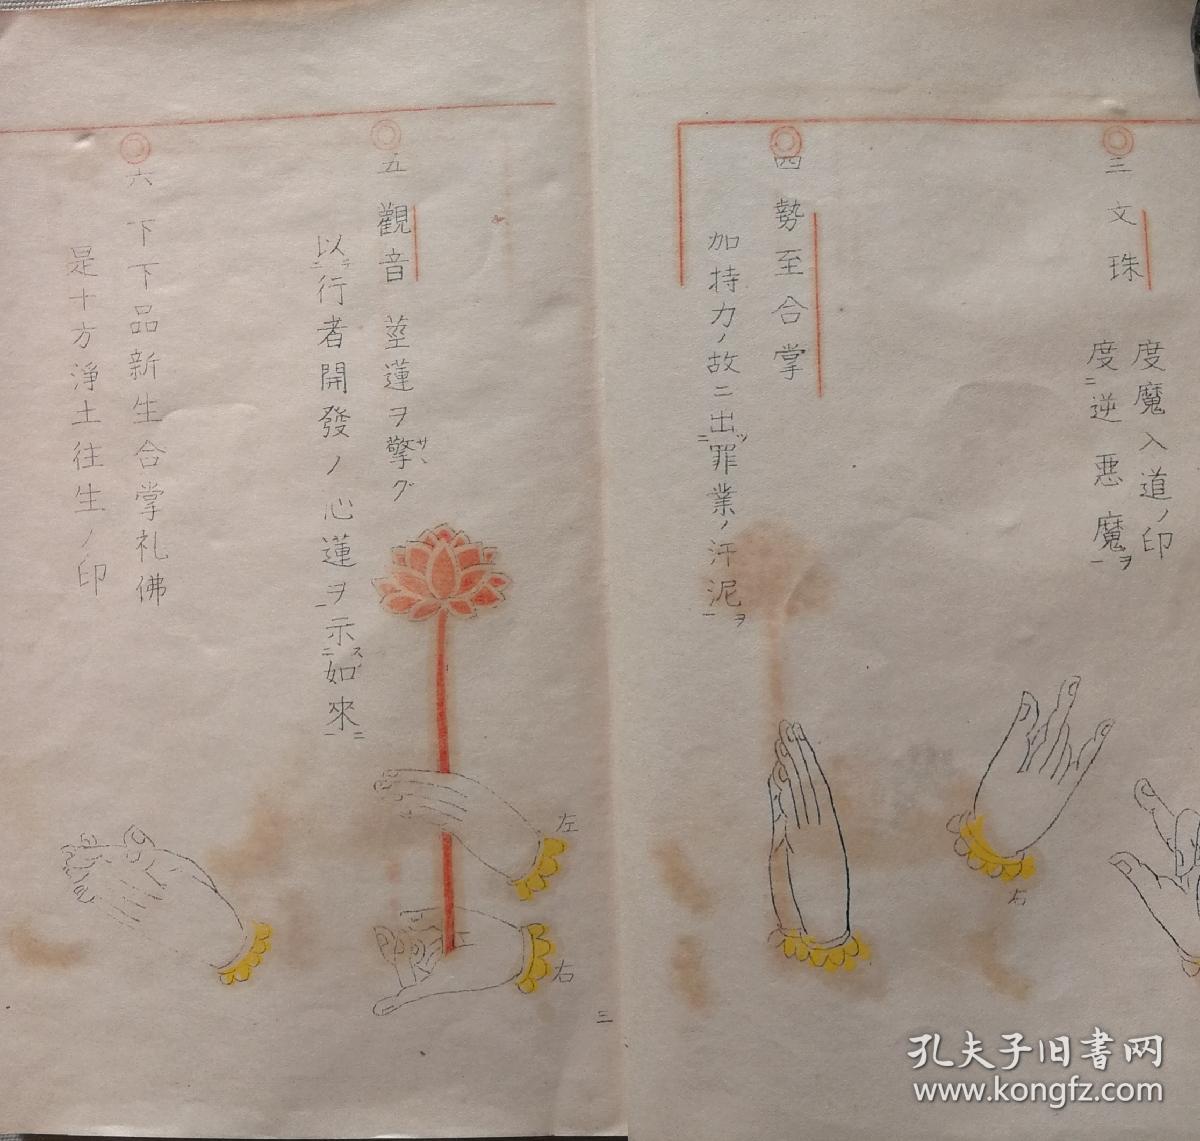 三 文珠
度魔入道ノ印
度ニ逆悪魔一ヲ
四 勢至合掌
加持力ノ故ニ出ニッ罪業ノ汗泥一ヲ
五 觀音 茎蓮ヲ擎サヽグ
以ニテ行者開發ノ心蓮一ヲ示ニス如來一ニ
六 下下品新生合掌礼佛
是十方淨土往生ノ印
右
左
右
三
孔夫子旧書网
www.kongfz.com